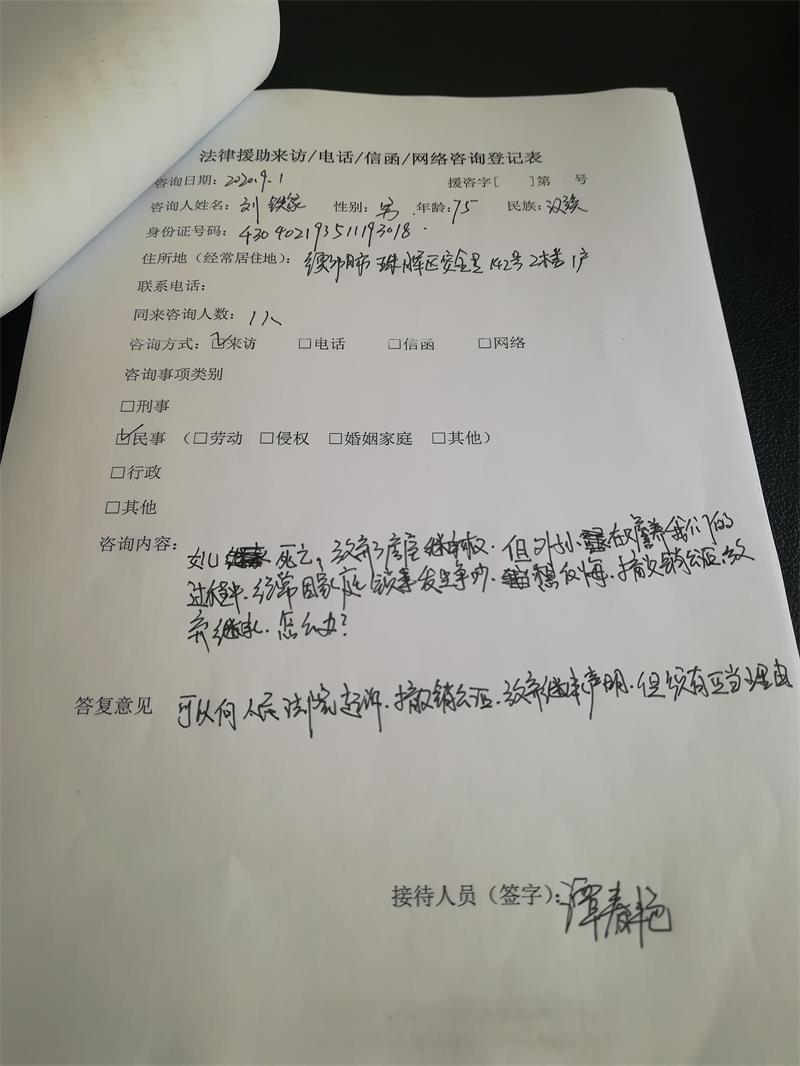 法律援助来访/电话/信函/网络咨询登记表
咨询日期：2020.9.1 援咨字[ ]第 号
咨询人姓名：刘铁家 性别：男 年龄：75 民族：汉族
身份证号码：430402193511193018
住所地（经常居住地）：衡阳市珠晖区安全里142号2楼1户
联系电话：
同来咨询人数：1人
咨询方式：☑来访 □电话 □信函 □网络
咨询事项类别
□刑事
☑民事（□劳动 □侵权 □婚姻家庭 □其他）
□行政
□其他
咨询内容：女儿死亡，放弃了房产继承权．但外孙在赡养我们的
过程中．经常因家庭锁事发生争吵．想反悔．撤销公证放
弃继承．怎么办？
答复意见 可以向人民法院起诉．撤销公证．放弃继承声明．但须有正当理由
接待人员（签字）：谭春艳